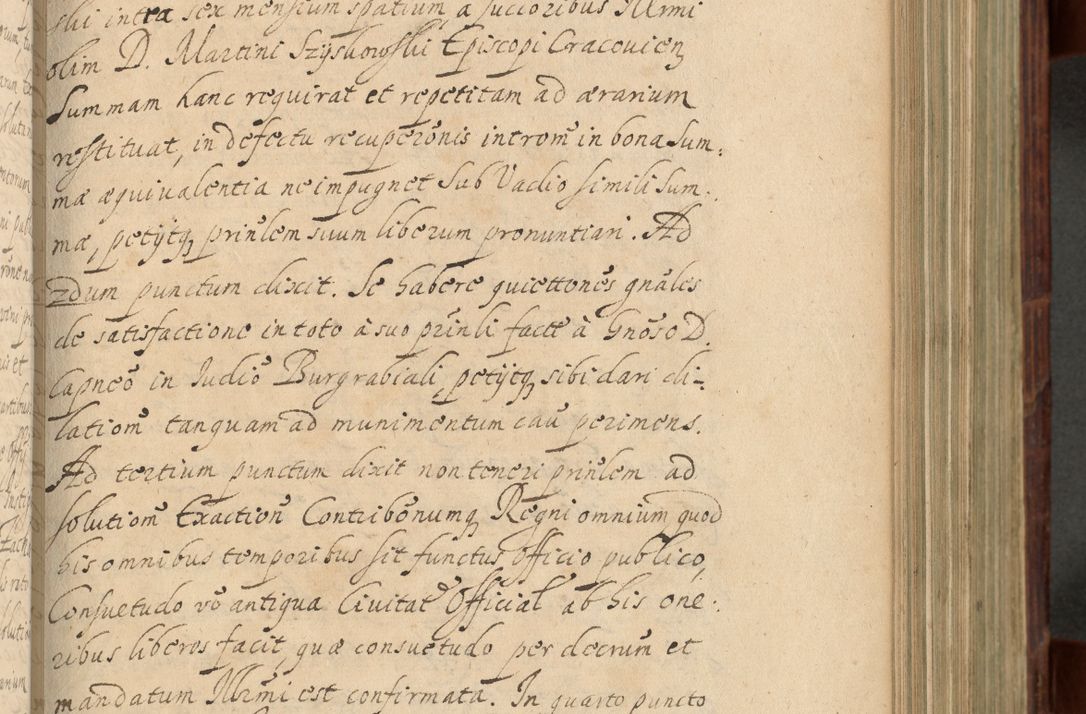 ski intra sex mensium spatium, a succoribus Illrmi
olim D. Martini Szyskowski Episcopi Cracovien̄
Summam hanc requirat et repetitam ad ærarium
restituat, in defectu recuperōnis introm̄ in bona Sum:
mæ æquivalentia ne impugnet sub Vadio simili Sum.
mæ, petijtq̨ prinīlem suum liberum pronuntiari. Ad
2dum punctum dixit. Se habere quiettōnes gnāles
de satisfactione in toto à suo prīnli factæ à Gnōso D.
Capneō in Iudiō Burgrabiali, petijtq̨ sibi dari di-
latiom̄ tanquam ad munimentum cau̅ perimens.
Ad tertium punctum dixit non teneri prinīlem ad
solutiom̄ Exaction̄ Contribōnumq̨ Regni omnium quod
his omnibus temporibus sit functus Officio publico,
Consuetudo vō antiqua Civitat̄ Official̄ ab his one:
ribus liberos facit, quæ consuetudo per decrūm et
mandatum Illrm̄i est confirmata. In quarto puncto